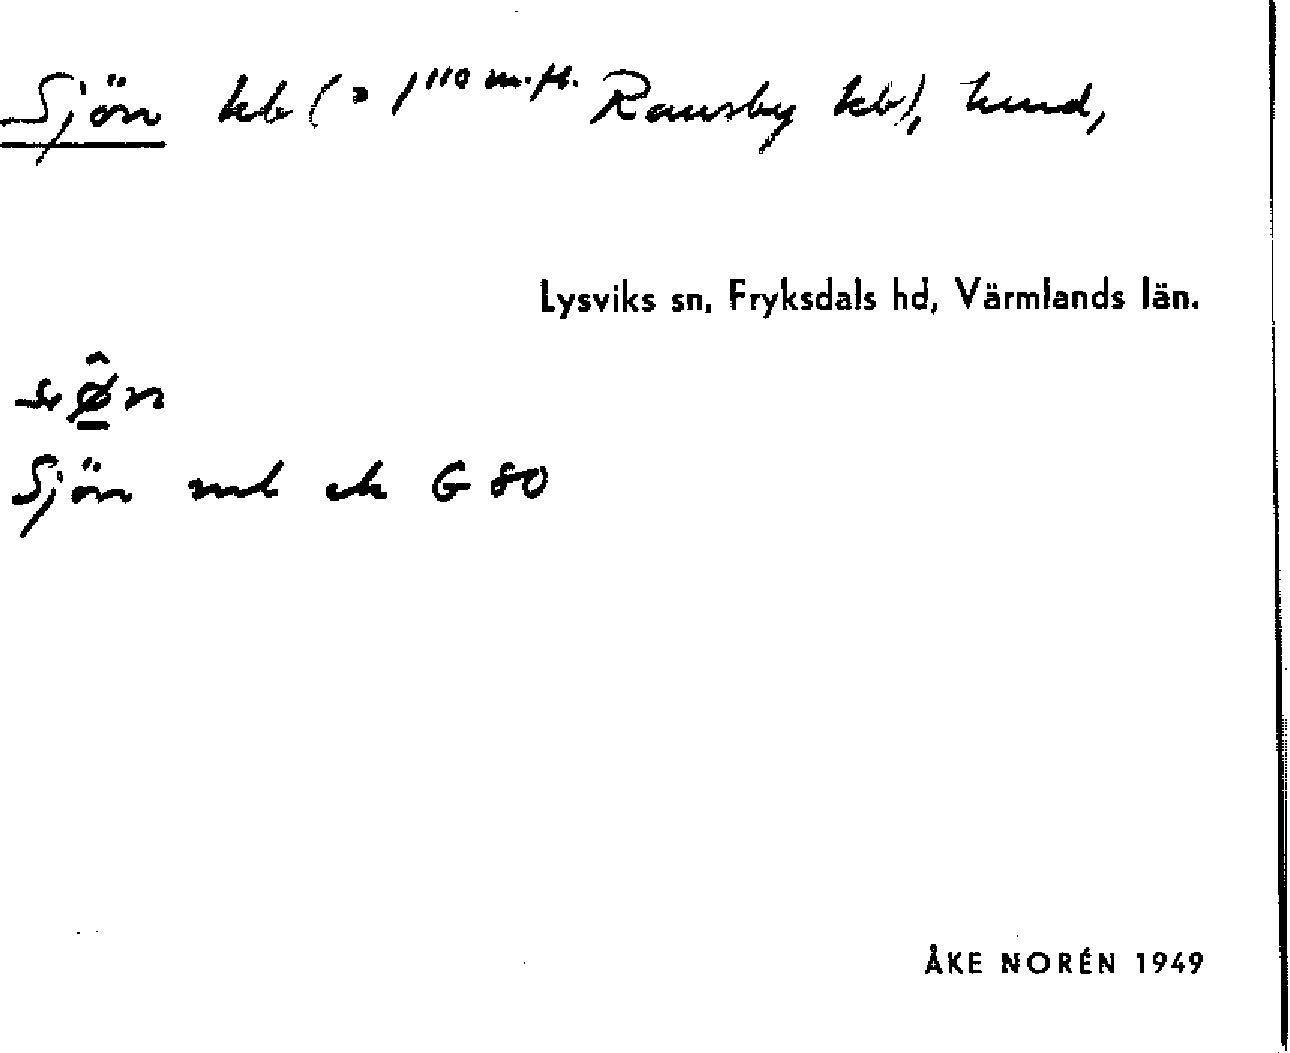 Sjön kb (= 1¹¹⁰ m.fl. Ransby kb),
Lysviks sn, Fryksdals hd, Värmlands län.
Sjön G 80
ÅKE NORÉN 1949